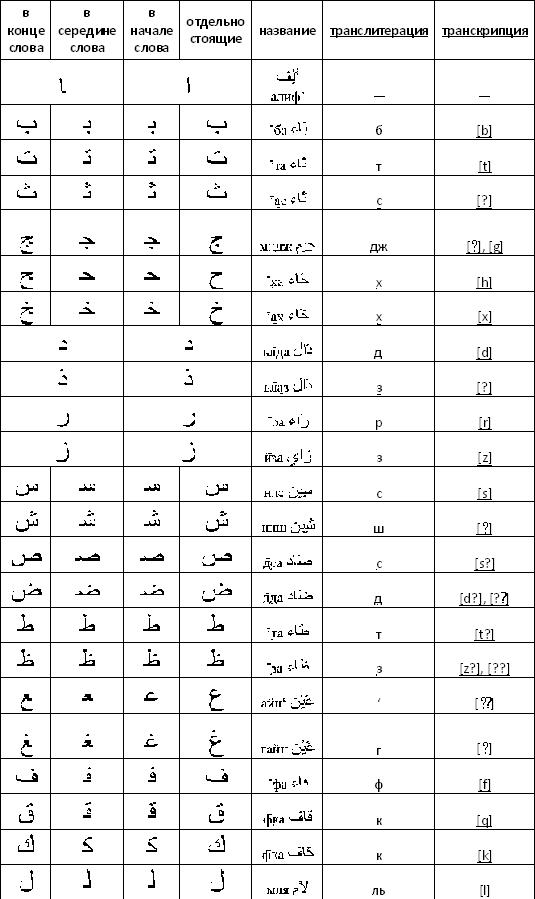 в конце слова в середине слова в начале слова отдельно стоящие название транслитерация транскрипция
ـا ا ألف алиф — —
ـب ـبـ بـ ب باء ба б [b]
ـت ـتـ تـ ت تاء та т [t]
ـث ـثـ ثـ ث ثاء с [?]
ـج ـجـ جـ ج جيم дж [?], [g]
ـح ـحـ حـ ح حاء ха х [h]
ـخ ـخـ خـ خ خاء х [x]
ـد د دال д [d]
ـذ ذ ذال з [?]
ـر ر راء ра р [r]
ـز ز زاي з [z]
ـس ـسـ سـ س سين с [s]
ـش ـشـ شـ ش شين ш [?]
ـص ـصـ صـ ص صاد с [s?]
ـض ـضـ ضـ ض ضاد д [d?], [??]
ـط ـطـ طـ ط طاء та т [t?]
ـظ ـظـ ظـ ظ ظاء за з [z?], [??]
ـع ـعـ عـ ع عين айн ‘ [??]
ـغ ـغـ غـ غ غين гайн г [?]
ـف ـفـ فـ ف فاء фа ф [f]
ـق ـقـ قـ ق قاف к [q]
ـك ـكـ كـ ك كاف к [k]
ـل ـلـ لـ ل لام ль [l]